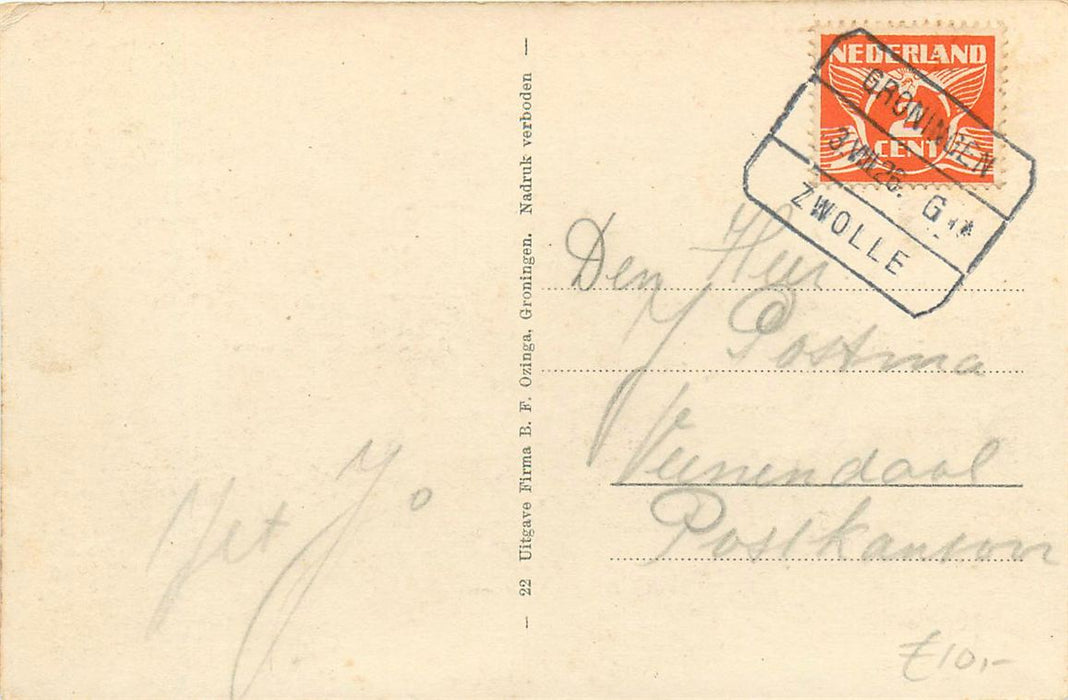 NEDERLAND
2
CENT
GRONINGEN
3.VIII.26. G
ZWOLLE
— 22 Uitgave Firma B. F. Ozinga, Groningen. Nadruk verboden —
Den Heer
J Postma
Veenendaal
Postkantoor
Jet Jo
10,-